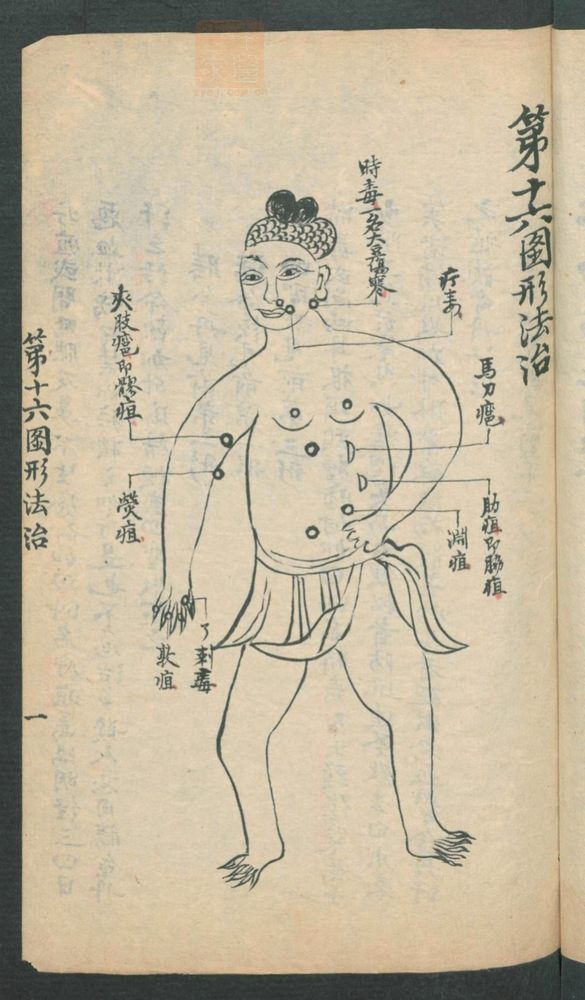 第十六圖形法治
時毒一名大頭傷寒
疔毒
馬刀癰
肋疽即脇疽
淵疽
夾肢癰即䯂疽
熒疽
了刺毒
敦疽
第十六圖形法治
一